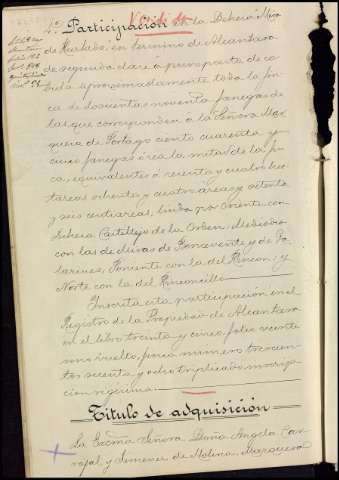 Vendida
4ª Participación en la Dehesa Mera
de Hurtado en término de Alcántara
de segunda clase á puro pasto de ca-
bida aproximadamente toda la fin-
ca de doscientas noventa fanegas de
las que corresponden á la Señora Mar-
quesa de Portago ciento cuarenta y
cinco fanegas ó sea la mitad de la fin-
ca, equivalentes á sesenta y cuatro hec-
tareas ochenta y cuatro áreas y setenta
y seis centiareas, linda por Oriente con
Dehesa Castillejo de la Orden; Mediodia
con las dehesas de Benavente y de Pa-
larines; Poniente con la del Rincon; y
Norte con la del Rinconcillo
Inscrita esta participación en el
Registro de la Propiedad de Alcántara
en el libro treinta y cinco, folio veinte
uno vuelto, finca número trescien-
tos sesenta y ocho triplicado inscrip-
ción vigésima.
Titulo de adquisición
La Excma Señora Doña Angela Car-
vajal y Jimenez de Molina, Marquesa